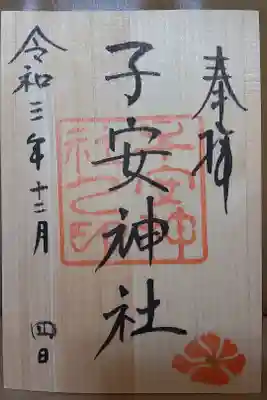 奉拝
子安神社
令和三年十二月 日